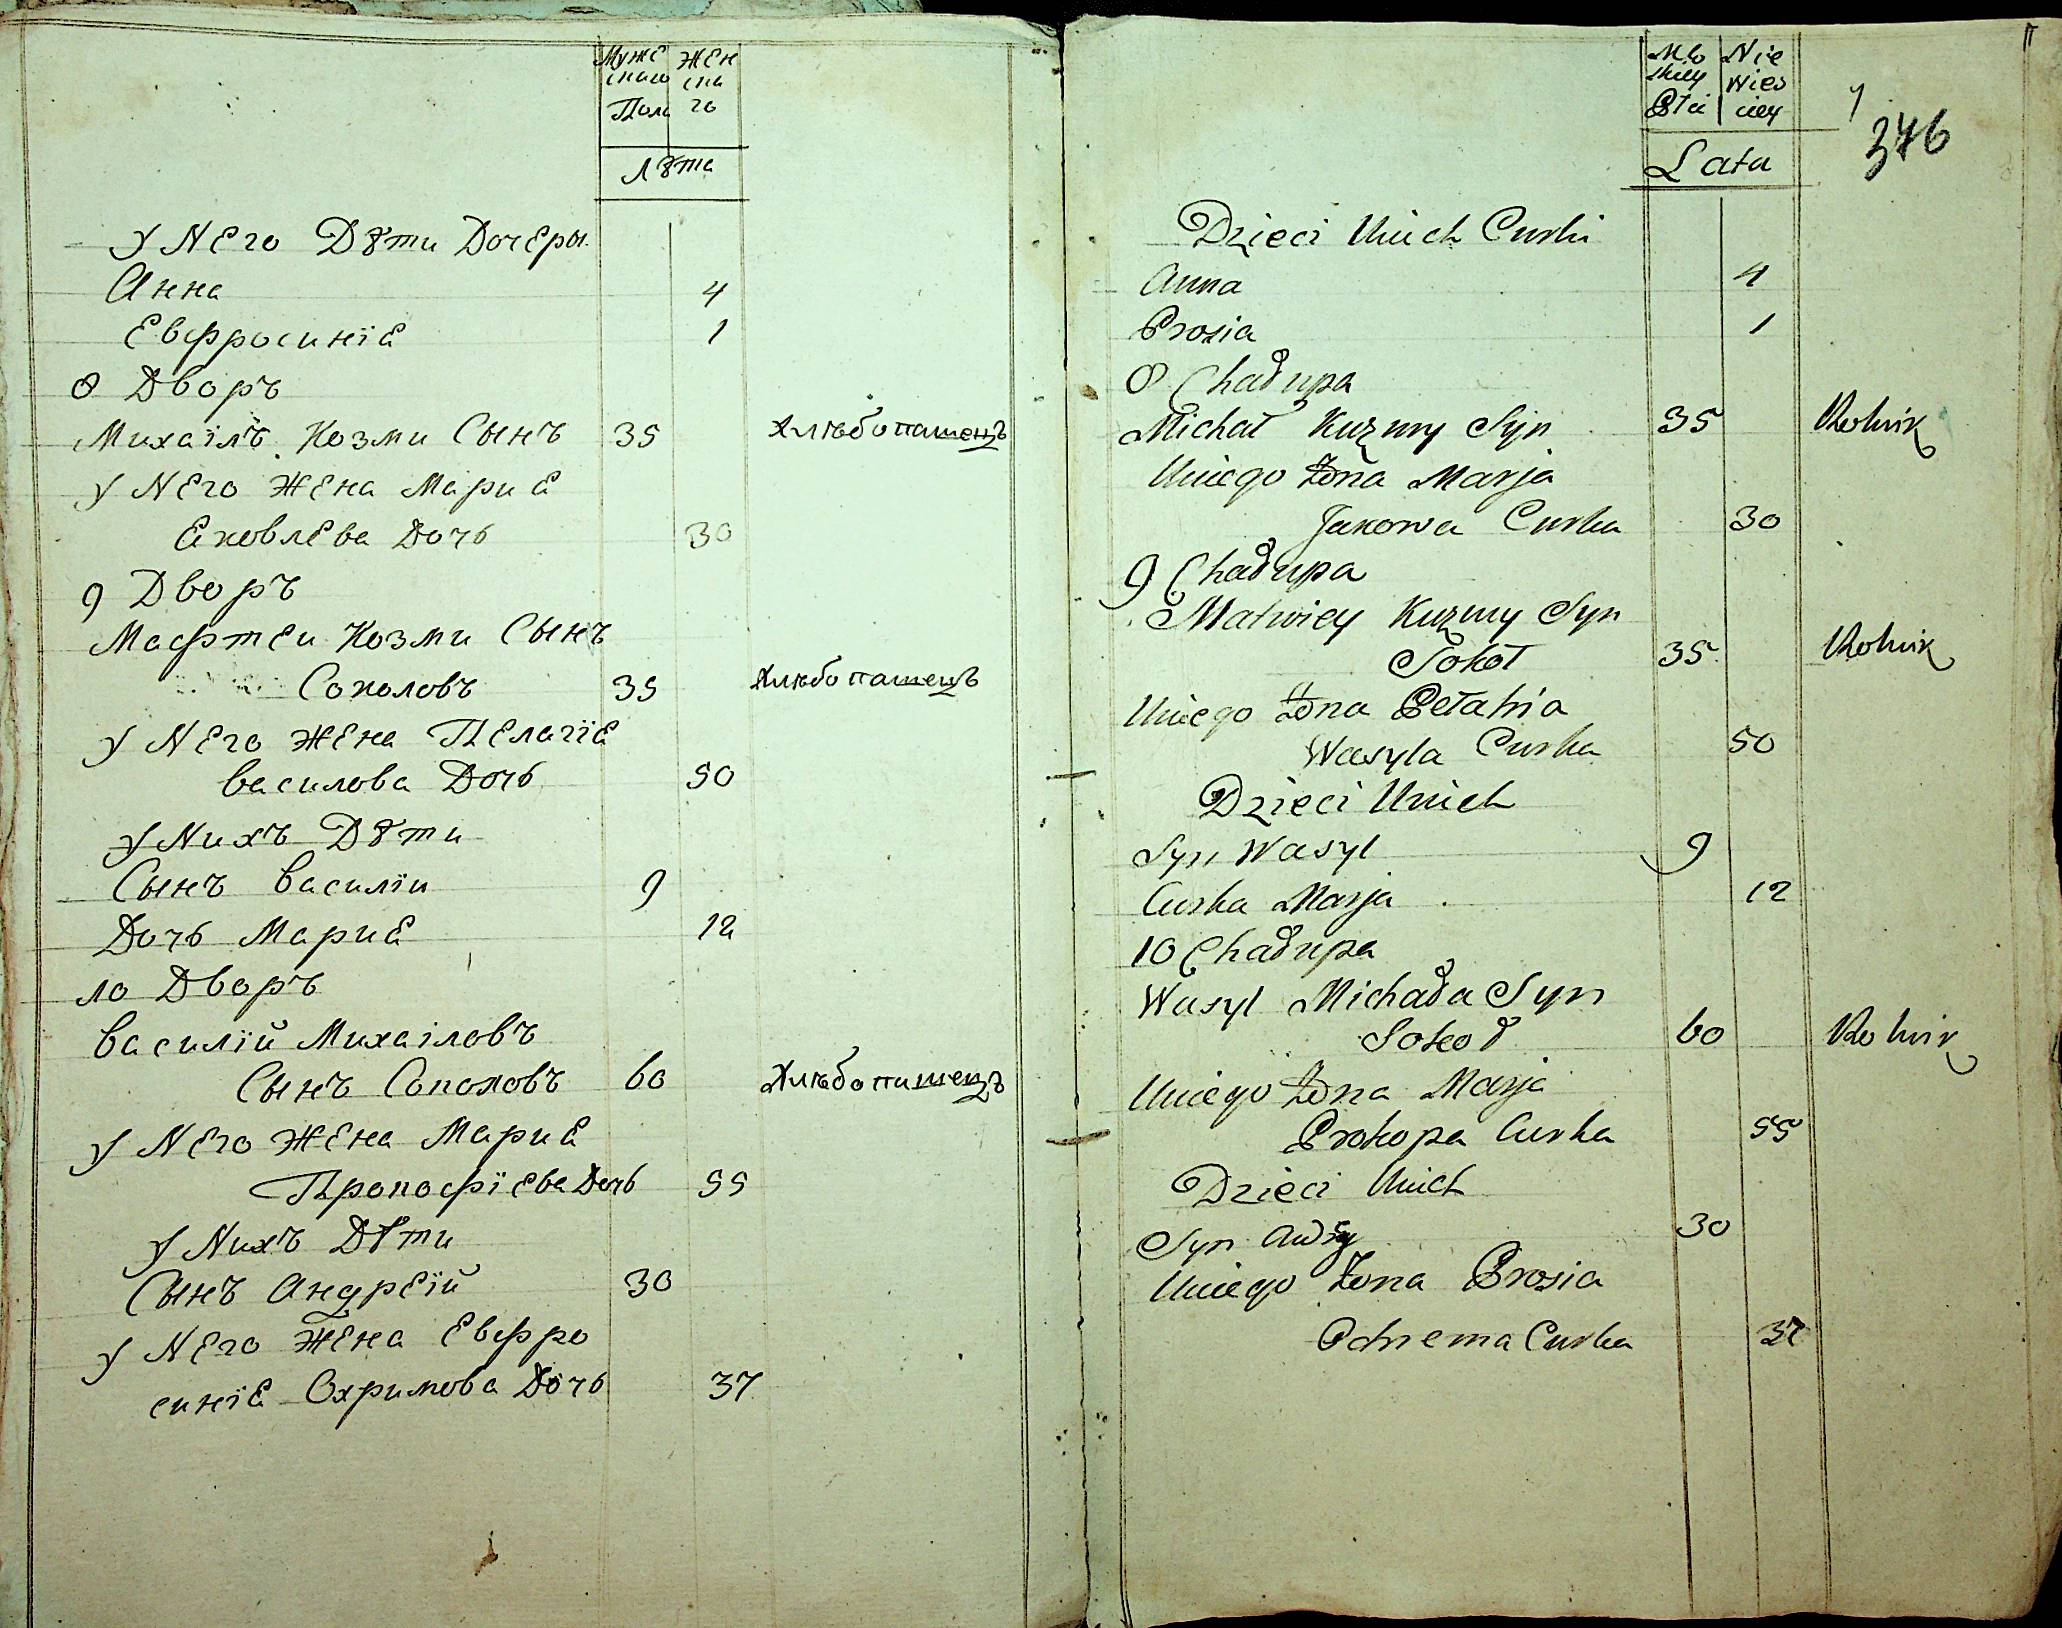 Муже ЖЕн
скаго ска
Пола го
Лѣта
у Него Дѣти Дочеры
Анна 4
Евфросинїѣ 1
8 Дворъ
Михаїлъ Козми Сынъ 35 Хлѣбопашецъ
у Него Жена Мариѣ
Яковлева Дочь 30
9 Дворъ
Мафтеи Козми Сынъ
Соколовъ 35 Хлѣбопашецъ
у Него жена Пелагїѣ
василова Дочь 50
у Нихъ Дѣти
Сынъ василїи 9
Дочь Мариѣ 12
10 Дворъ
василїй Михаіловъ
Сынъ Соколовъ 60 Хлѣбопашецъ
у Него жена Мариѣ
Прокофїева Дочь 55
у Нихъ Дѣти
Сынъ Андреїй 30
у Него жена Евфро
синїѣ Охримова Дочь 37
Mło Nie
skiey wies
Płci ciey
Lata
346
Dzieci Unich Curki
Anna 4
Prosia 1
8 Chałupa
Michał Kuzmy Syn 35 Rolnik
Uniego Żona Marja
Jakowa Curka 30
9 Chałupa
Matwiey Kuzmy Syn
Sokoł 35 Rolnik
Uniego Żona Pełahia
Wasyla Curka 50
Dzieci Unich
Syn Wasyl 9
Curka Marja 12
10 Chałupa
Wasyl Michała Syn
Sokoł 60 Rolnik
Uniego Żona Marja
Prokopa Curka 55
Dzieci Unich
Syn 30
Uniego Żona Prosia
Curka 37